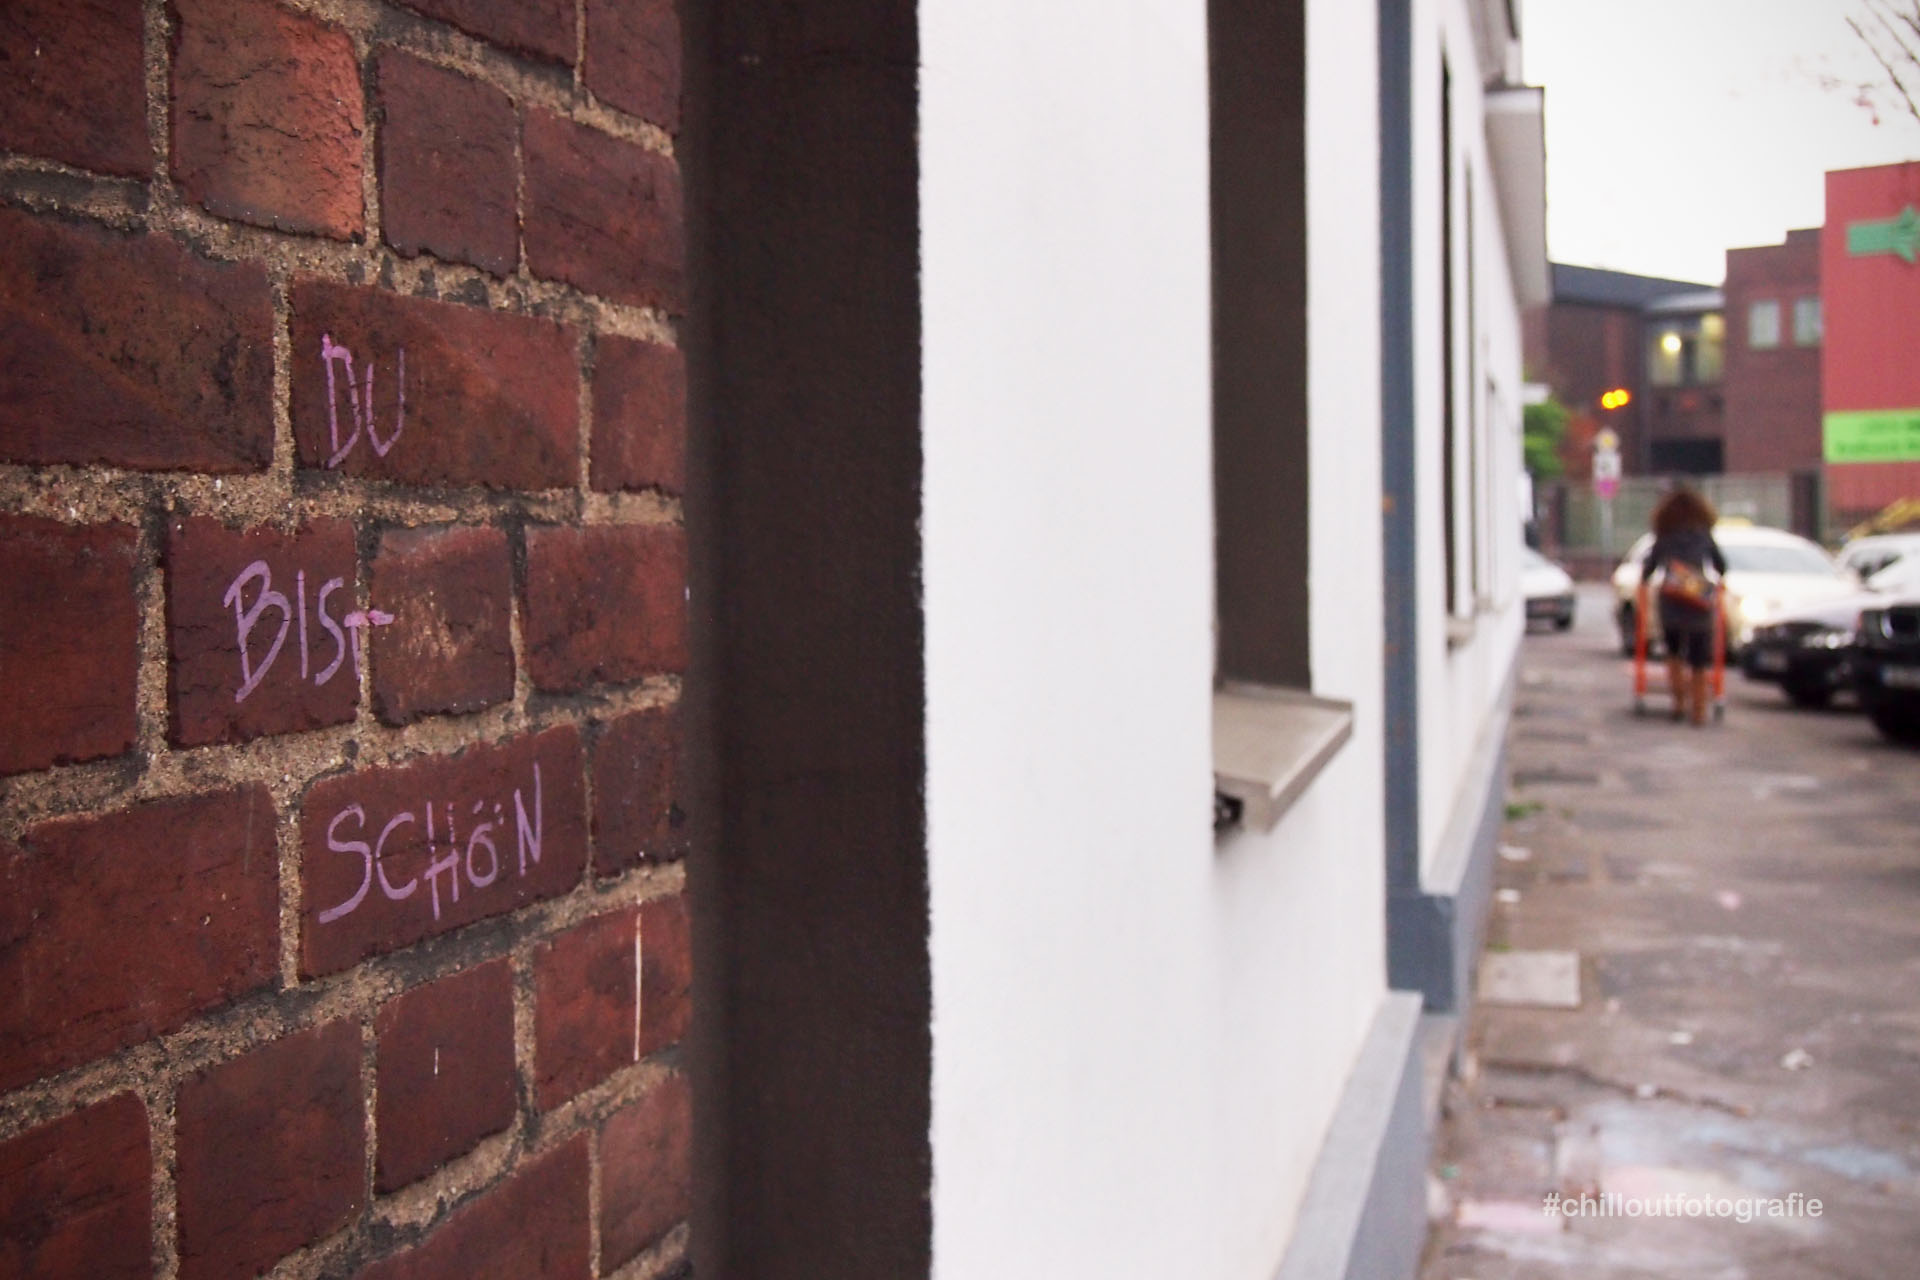 DU
BIST
SCHÖN
#chilloutfotografie